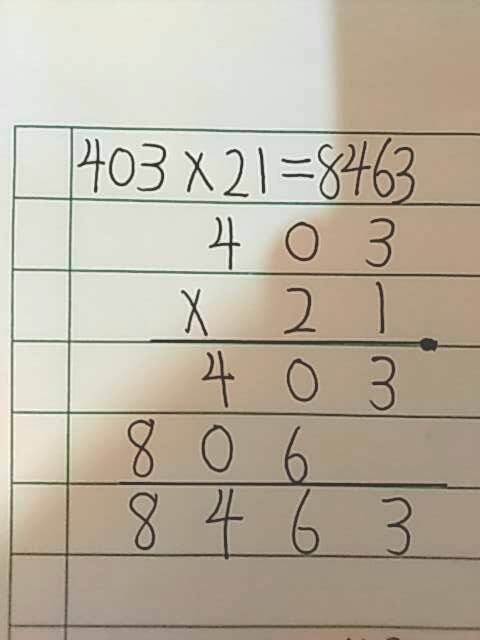 403×21=8463
4 0 3
× 2 1
4 0 3
8 0 6
8 4 6 3